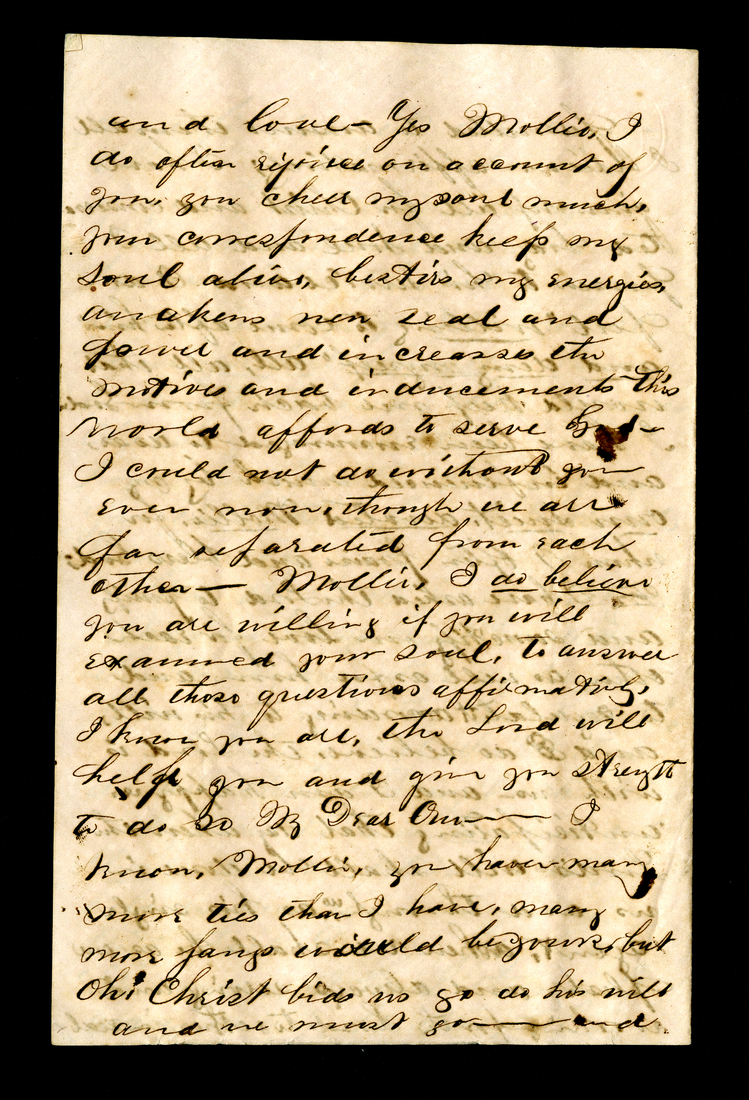 and love - Yes Mollie, I
do often rejoice on account of
you, you cheer my soul much,
your correspondence keeps my
soul alive, bestirs my energies,
awakens new zeal and
power and increases the
motives and inducements this
world affords to serve God -
I could not do without you
ever now, though we are
far separated from each
other — Mollie, I do believe
you are willing if you will
examined your soul, to answer
all those questions affirmatively,
I know you are, the Lord will
help you and give you strength
to do so My Dear One — I
know, Mollie, you have many
more ties than I have, many
more pangs would be yours, but
Oh! Christ bids us go do his will
and we must go — and